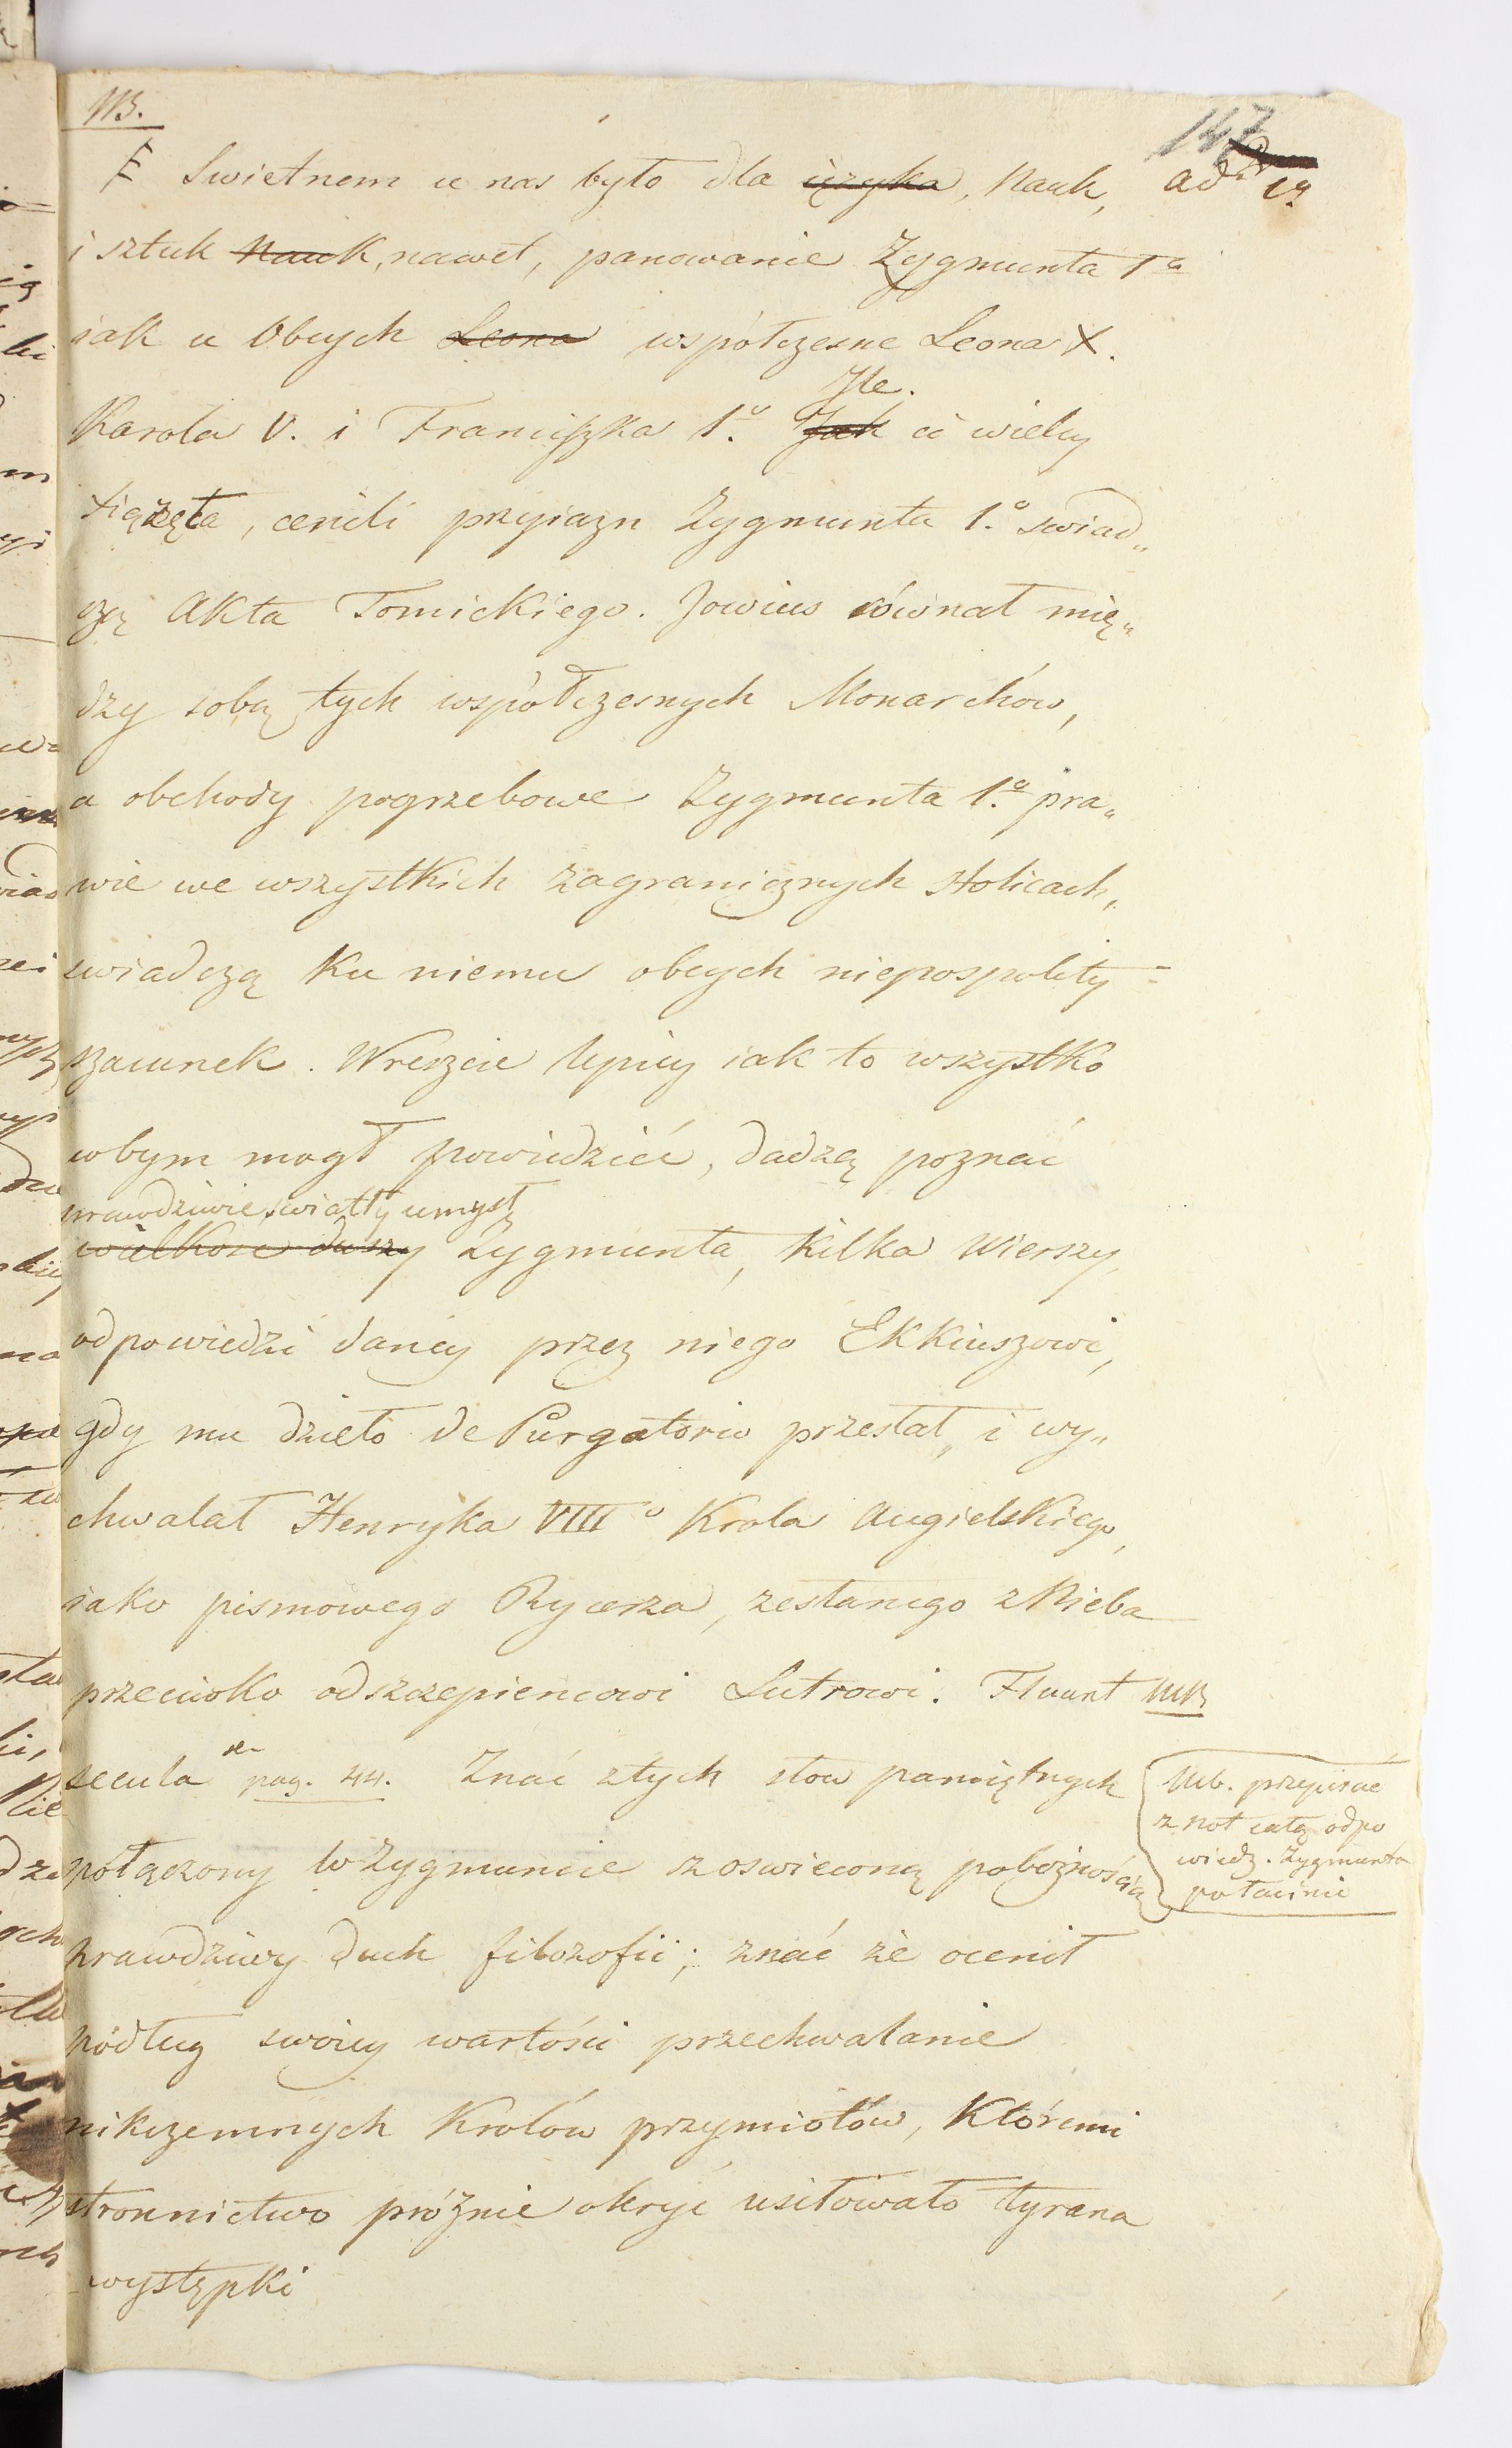 NB.
147
ad
Swietnem u nas było dla ięzyka, Nauk,
i sztuk Nauk, nawet, panowanie Zygmunta 1o
iak u Obcych Leona współczesne Leona X.
Ile.
Karola V. i Franciszka 1o. Jak ci wielcy
Xiążęta, cenili przyiazn Zygmunta 1o. swiad„
czą Akta Tomickiego. Jowius równał mię„
dzy sobą tych współczesnych Monarchów,
a obchody pogrzebowe Zygmunta 1o. pra„
wie we wszystkich zagranicznych stolicach,
swiadczą ku niemu obcych niepospolity =
szacunek. Wreszcie lepiey iak to wszystko
cobym mogł powiedzieć, dadzą poznać
prawdziwie swiatły umysł
wielkosc duszy Zygmunta, kilka wierszy
odpowiedzi daney przez niego Ekkiuszowi,
gdy mu dzieło de Purgatorio przesłał, i wy„
chwalał Henryka VIIIo Krola Angielskiego,
iako pismowego Rycerza, zesłanego z Nieba
przeciwko odszczepiencowi Lutrowi. Fluunt NB
secula pag. 44. Znać z tych słow pamiętnych
Nb. przepisać
z not całą odpo
wiedz. Zygmunta
po łacinie
połączony w Zygmuncie z oswieconą pobożnością
prawdziwy duch filozofii; znać że ocenił
podług swoiey wartości przechwalanie
nikczemnych Krolów przymiotów, któremi
stronnictwo próżnie okryć usiłowało tyrana
występki